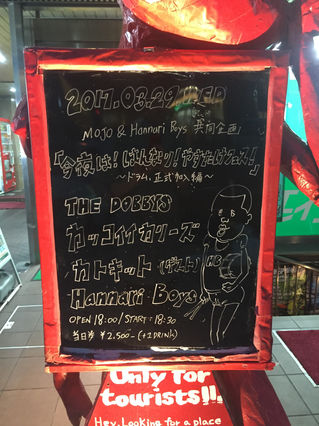 2017.03.29.WED
MOJO & Hannari Boys 共同企画
「今夜は!はんなり!やすたけフェス!」
〜ドラム、正式加入編〜
THE DOBBYS
カッコイイカリーズ
カトキット(ゲスト)
Hannari Boys
HB
OPEN 18:00/START 18:30
当日券 ¥2,500-(+1DRINK)
Only for
tourists!!
Hey, Looking for a place